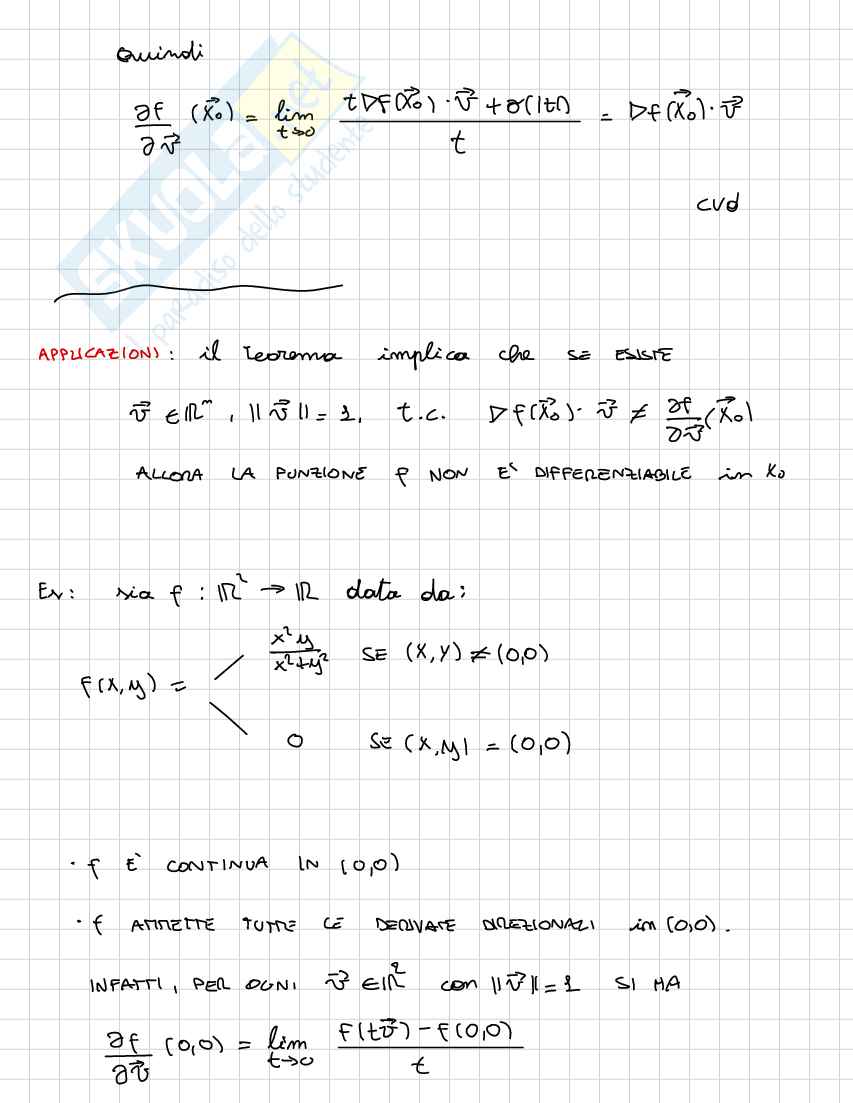 Quindi
∂f/∂v⃗ (x⃗₀) = lim t→0 (t∇f(x⃗₀)·v⃗ + o(|t|))/t = ∇f(x⃗₀)·v⃗
cvd
SKUOLA.net
il paradiso dello studente
APPLICAZIONI: il teorema implica che SE ESISTE
v⃗ ∈ ℝⁿ, ||v⃗|| = 1, t.c. ∇f(x⃗₀)·v⃗ ≠ ∂f/∂v⃗ (x⃗₀)
ALLORA LA FUNZIONE f NON E' DIFFERENZIABILE in x₀
Es: sia f : ℝ² → ℝ data da:
f(x,y) =
x²y/(x²+y²) SE (x,y) ≠ (0,0)
0 SE (x,y) = (0,0)
· f È CONTINUA IN (0,0)
· f AMMETTE TUTTE LE DERIVATE DIREZIONALI in (0,0).
INFATTI, PER OGNI v⃗ ∈ ℝ² con ||v⃗|| = 1 SI HA
∂f/∂v⃗ (0,0) = lim t→0 (f(tv⃗) - f(0,0))/t